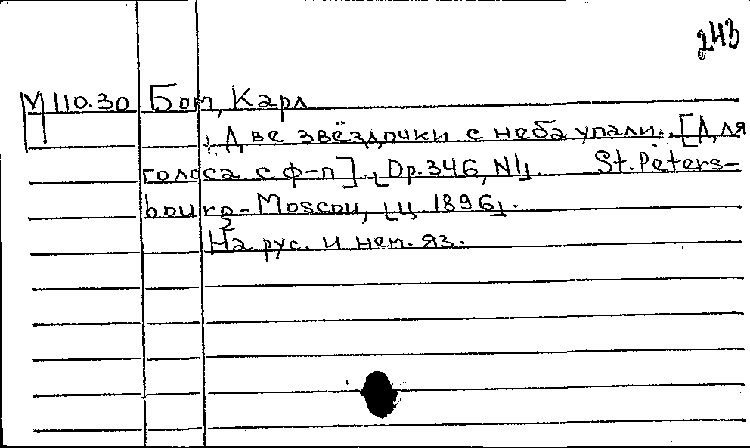 243
М 110.30 Бом, Карл
Две звёздочки с неба упали.. [Для
голоса с ф-п]. [Op. 346, N 1]. St. Peters-
bourg-Moscou, [ц. 1896].
На рус. и нем. яз.